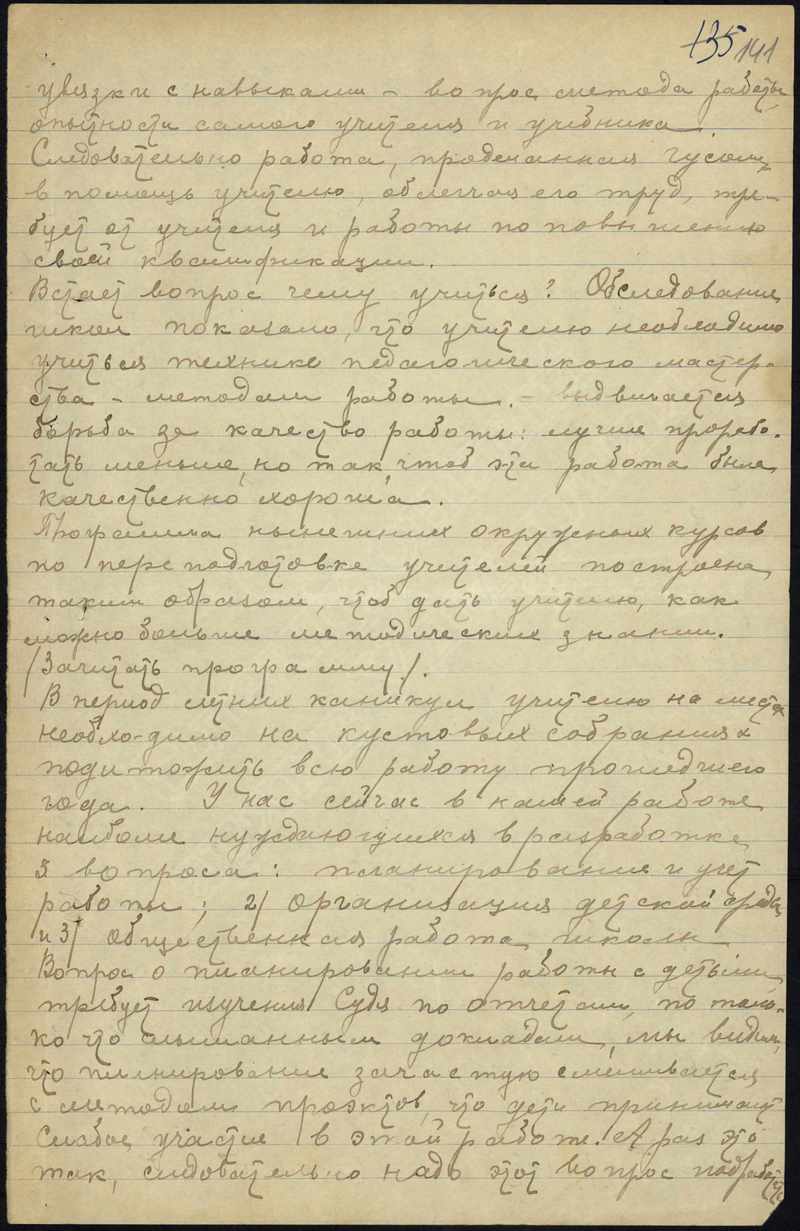 135 141
увязки с навыками – вопрос метода работы,
опытности самого учителя и учебника.
Следовательно работа, проделанная Гусом,
в помощь учителю, облегчая его труд, тре-
бует от учителя и работы по повышению
своей квалификации.
Встает вопрос чему учиться? Обследование
школ показало, что учителю необходимо
учиться технике педагогического мастер-
ства – методам работы. – выдвигается
борьба за качество работы: лучше прорабо-
тать меньше, но так, чтоб эта работа была
качественно хороша.
Программа нынешних окружных курсов
по переподготовке учителей построена
таким образом, чтоб дать учителю, как
можно больше методических знании.
/Зачитать программу/.
В период летних каникул учителю на местах
необхо-димо на кустовых собраниях
подитожить всю работу прошедшего
года. У нас сейчас в нашей работе
наиболе нуждающихся в разработке
3 вопроса: планирование и учет
работы; 2/ Организация детской среды
и 3/ общественная работа школы
Вопрос о планировании работы с детьми
требует изучения Судя по отчетам, по толь-
ко что слышанным докладам, мы видим,
что планирование зачастую смешивается
с методом проэктов, что дети принимают
слабое участие в этой работе. А раз это
так, следовательно надо этот вопрос